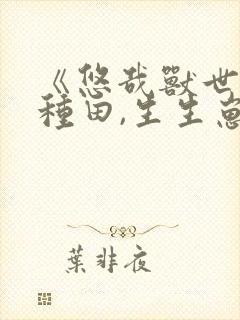 《悠哉獸世
種田,生生
葉非夜